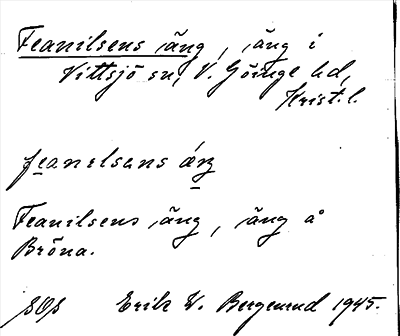 Feanilsens äng, äng i
Vittsjö sn, V. Göinge hd,
Krist. l.
feanelsans áŋ
Feanilsens äng, äng å
Bröna.
Erik W. Bergmund 1945.